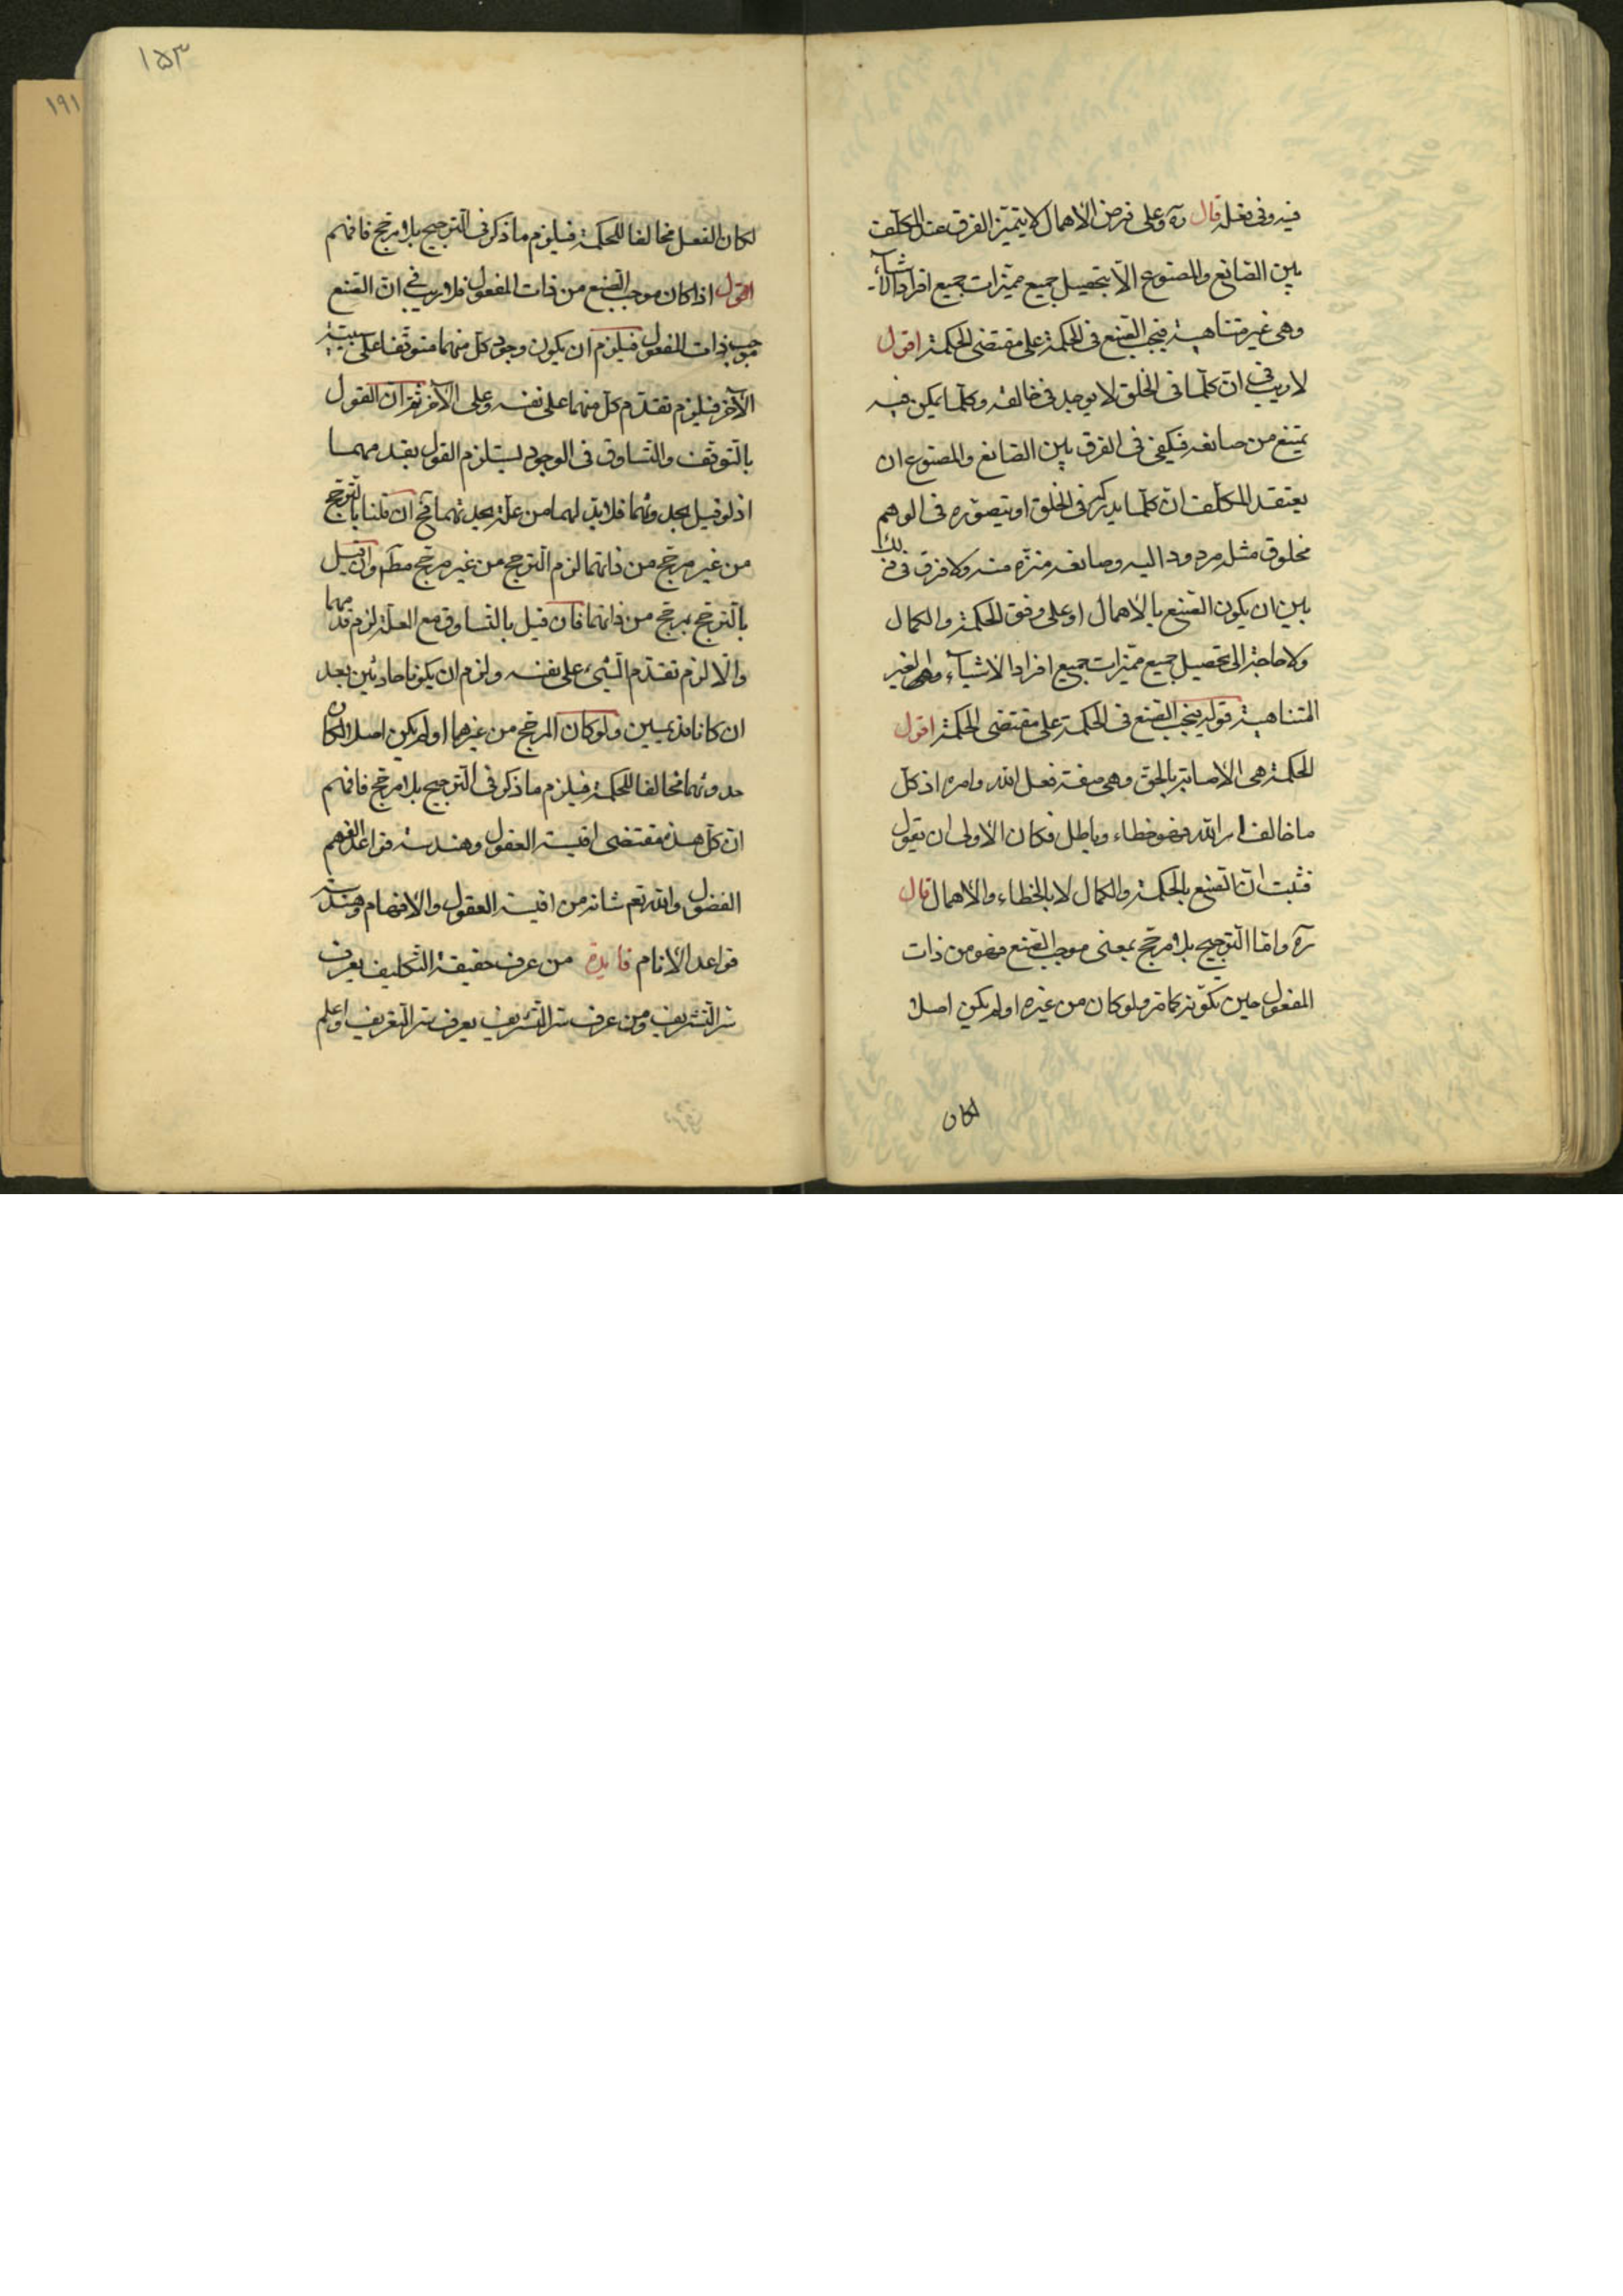 فيه وفى فعله قال ره وعلى فرض الاهمال لا يتميّز الفرق عند المكلّف
بين الصّانع والمصنوع الّا بتحصيل جميع مميّزات جميع افراد الأشياء
وهى غير متناهية فيجب الصّنع فى الحكمة على مقتضى الحكمة اقول
لا ريب فى انّ كلّما فى الخلق لا يوجد فى خالقه وكلّما يمكن فيه
يمتنع من صانعه فيكفى فى الفرق بين الصّانع والمصنوع ان
يعتقد المكلّف انّ كلّما يدركه فى الخلق او يتصوّره فى الوهم
مخلوق مثله مردود اليه وصانعه منزّه عنه ولا فرق فى ذلك
بين ان يكون الصّنع بالاهمال او على وفق الحكمة والكمال
ولا حاجة الى تحصيل جميع مميّزات جميع افراد الاشياء وهى الغير
المتناهية قوله فيجب الصّنع فى الحكمة على مقتضى الحكمة اقول
الحكمة هى الاصابة بالحقّ وهى صفة فعل الله وامره اذ كلّ
ما خالف امر الله فهو خطاء وباطل فكان الاولى ان تقول
فثبت انّ الصّنع بالحكمة والكمال لا بالخطاء والاهمال قال
ره وامّا التّرجيح بلا مرجّح بمعنى موجب الصّنع فهو من ذات
المفعول حين تكوّنه كما مرّ ولو كان من غيره او لم يكن اصلا
لكان
١٥٣
١٩١
لكان الفعل مخالفا للحكمة فيلزم ما ذكر فى التّرجيح بلا مرجّح فافهم
اقول اذا كان موجب الصّنع من ذات المفعول فلا ريب فى انّ الصّنع
موجب ذات المفعول فيلزم ان يكون وجود كلّ منهما متوقّفا على سببيّة
الآخر فيلزم تقدّم كلّ منهما على نفسه وعلى الآخر ثمّ انّ القول
بالتّوقّف والتّساوق فى الوجود يستلزم القول بقدمهما
اذ لو قيل بحدوثهما فلا بدّ لهما من علّة بحدوثهما فح ان قلنا بالتّرجّح
من غير مرجّح من ذاتهما لزم التّرجح من غير مرجّح مطلم وان قيل
بالتّرجّح بمرجّح من ذاتهما فان قيل بالتّساوق مع العلّة لزم قدمهما
والّا لزم تقدّم الشّىء على نفسه ولزم ان يكونا حادثين بعد
ان كانا قديمين ولو كان المرجّح من غيرهما او لم يكن اصلا لكان
حدوثهما مخالفا للحكمة فيلزم ما ذكر فى التّرجيح بلا مرجّح فافهم
انّ كلّ هذه مقتضى اقيسة العقول وهندسة قواعد الفهم
الفضول والله تعم شانه من اقيسة العقول والافهام وهندسة
قواعد الأنام فايدة من عرف حقيقة التّكليف يعرف
سرّ التّشريف ومن عرف سرّ التّشريف يعرف سرّ التّعريف واعلم